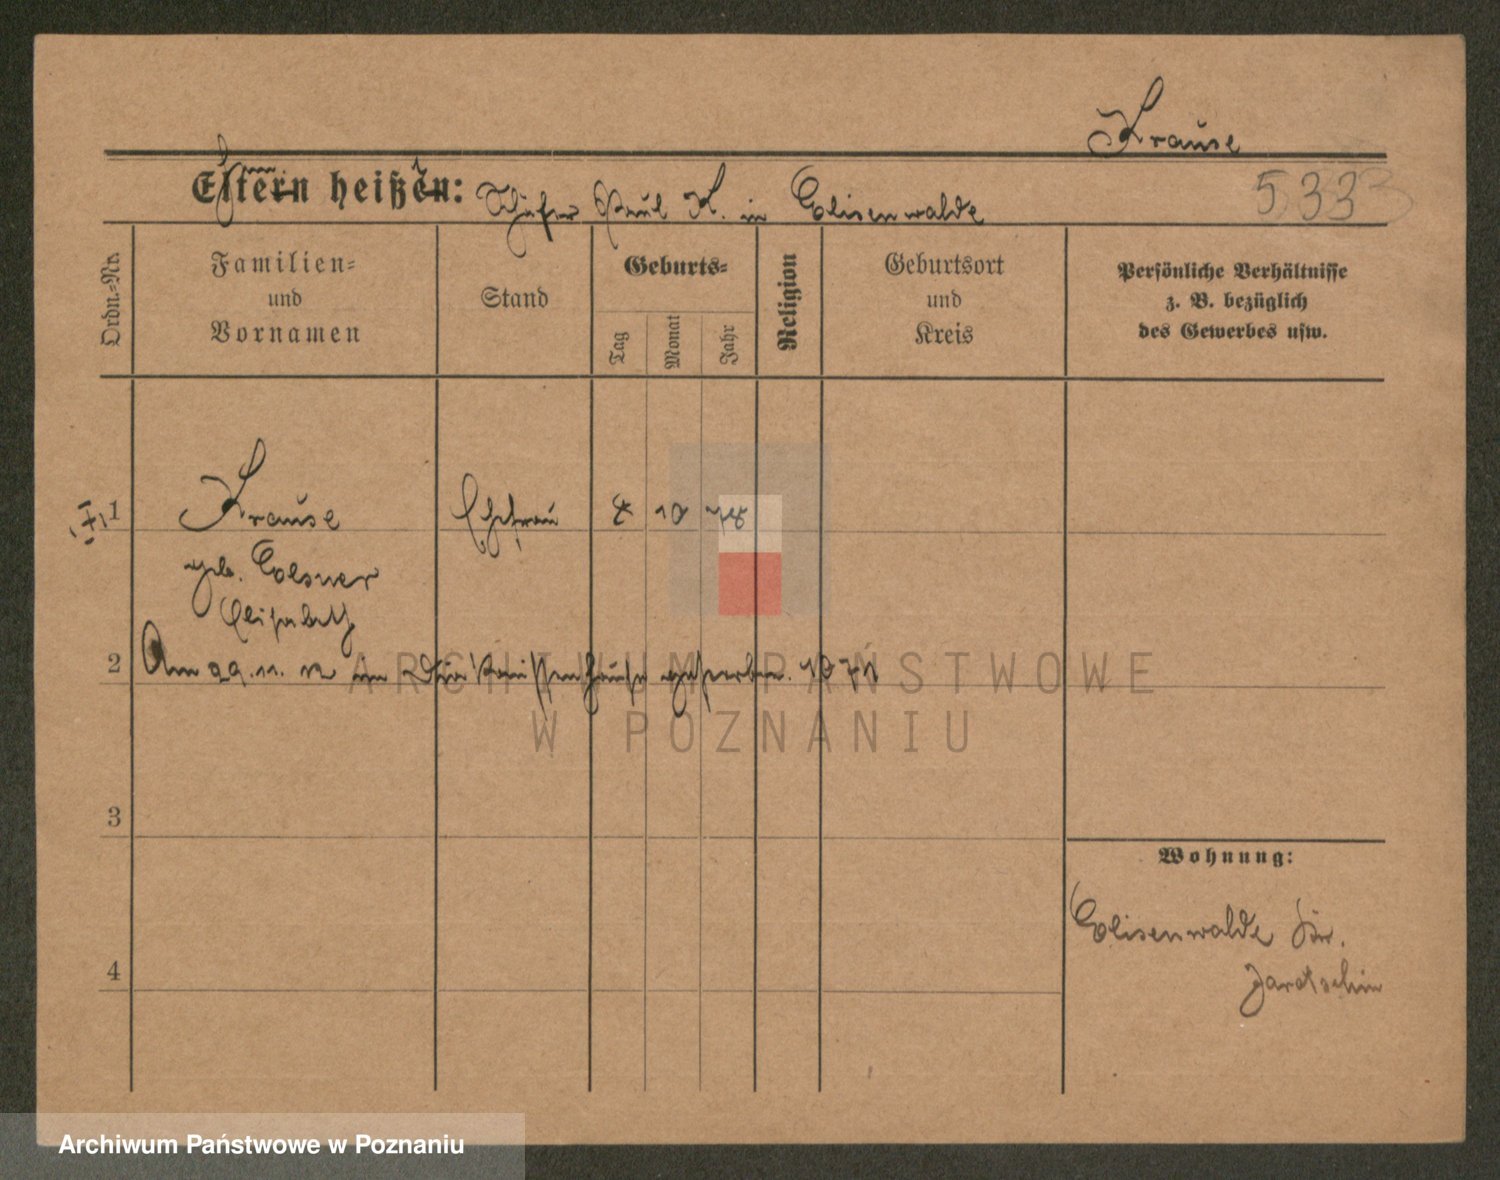 Krause
Eltern heißen: Schäfer Paul K. in Elisenwalde
5333
Ordn.-Nr.
Familien-
und
Vornamen
Stand
Geburts-
Tag
Monat
Jahr
Religion
Geburtsort
und
Kreis
Persönliche Verhältnisse
z. B. bezüglich
des Gewerbes usw.
1 Krause Ehefrau 8 10 78
geb. Elsner
Elisabeth
2 Am 29.11.12 im Diakonissenhause gestorben.
ARCHIWUM PAŃSTWOWE
W POZNANIU
3
Wohnung:
Elisenwalde Kr.
Jarotschin
4
Archiwum Państwowe w Poznaniu